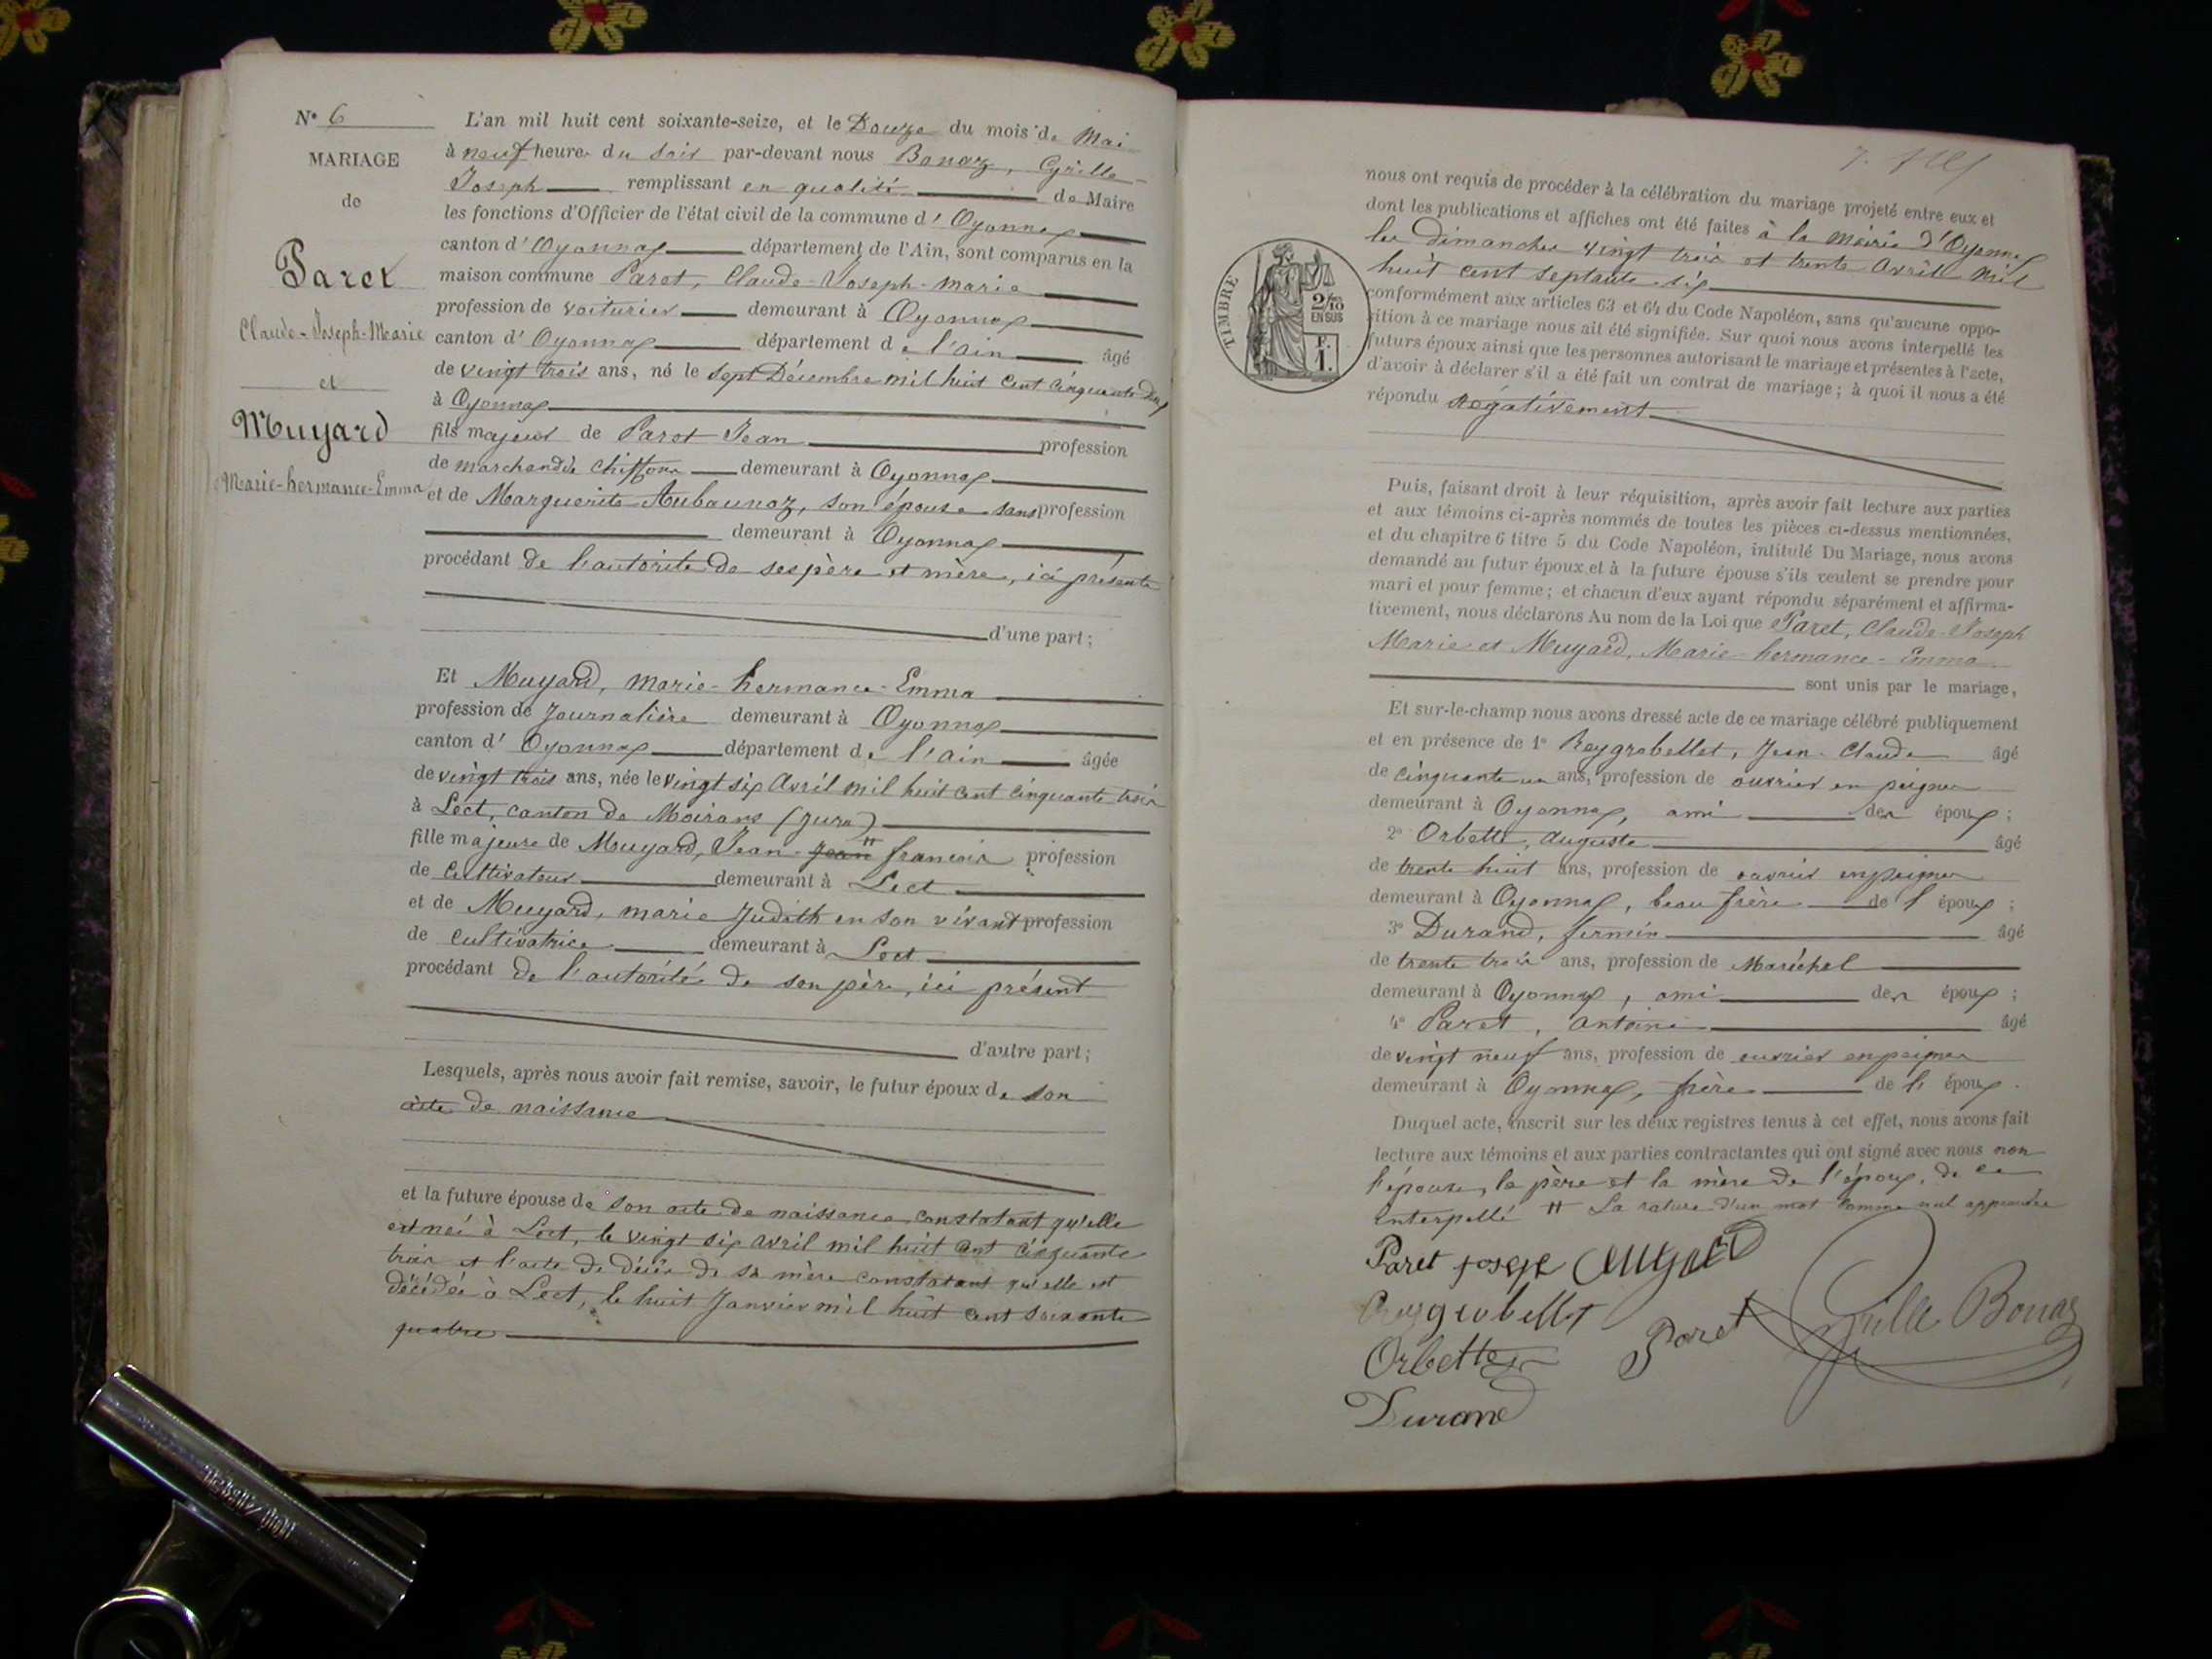 N° 6
MARIAGE
de
Paret
Claude-Joseph-Marie
et
Muyard
Marie-hermance-Emma
L'an mil huit cent soixante-seize, et le Douze du mois de Mai
à neuf heures du soir par-devant nous Bonaz, Cyrille
Joseph remplissant en qualité de Maire
les fonctions d'Officier de l'état civil de la commune d'Oyonnax
canton d'Oyonnax département de l'Ain, sont comparus en la
maison commune Paret, Claude-Joseph-Marie
profession de voiturier demeurant à Oyonnax
canton d'Oyonnax département de l'Ain âgé
de vingt trois ans, né le sept Décembre mil huit cent cinquante deux
à Oyonnax
fils majeur de Paret Jean profession
de marchand de chiffons demeurant à Oyonnax
et de Marguerite son épouse sans profession
demeurant à Oyonnax
procédant de l'autorité de ses père et mère, ici présents
d'une part;
Et Muyard, Marie-hermance-Emma
profession de Journalière demeurant à Oyonnax
canton d'Oyonnax département de l'Ain âgée
de vingt trois ans, née le vingt six Avril mil huit cent cinquante trois
à Lect, canton de Moirans (Jura)
fille majeure de Muyard, Jean-Jean françois profession
de Cultivateur demeurant à Lect
et de Muyard, marie Judith en son vivant profession
de cultivatrice demeurant à Lect
procédant de l'autorité de son père, ici présent
d'autre part;
Lesquels, après nous avoir fait remise, savoir, le futur époux de son
acte de naissance
et la future épouse de son acte de naissance constatant qu'elle
est née à Lect, le vingt six avril mil huit cent cinquante
trois et l'acte de décès de sa mère constatant qu'elle est
décédée à Lect, le huit Janvier mil huit cent soixante
quatre
nous ont requis de procéder à la célébration du mariage projeté entre eux et
dont les publications et affiches ont été faites à la Mairie d'Oyonnax
les dimanches vingt trois et trente Avril mil
huit cent septante six
TIMBRE
2/10 EN SUS
F. 1.
conformément aux articles 63 et 64 du Code Napoléon, sans qu'aucune oppo-
sition à ce mariage nous ait été signifiée. Sur quoi nous avons interpellé les
futurs époux ainsi que les personnes autorisant le mariage et présentes à l'acte,
d'avoir à déclarer s'il a été fait un contrat de mariage; à quoi il nous a été
répondu négativement
Puis, faisant droit à leur réquisition, après avoir fait lecture aux parties
et aux témoins ci-après nommés de toutes les pièces ci-dessus mentionnées,
et du chapitre 6 titre 5 du Code Napoléon, intitulé Du Mariage, nous avons
demandé au futur époux et à la future épouse s'ils veulent se prendre pour
mari et pour femme; et chacun d'eux ayant répondu séparément et affirma-
tivement, nous déclarons Au nom de la Loi que Paret, Claude-Joseph
Marie et Muyard, Marie-hermance-Emma
sont unis par le mariage,
Et sur-le-champ nous avons dressé acte de ce mariage célébré publiquement
et en présence de 1° Reygrobellet, Jean-Claude âgé
de cinquante un ans, profession de ouvrier en peignes
demeurant à Oyonnax, ami des époux;
2° Orbette, Auguste âgé
de trente huit ans, profession de ouvrier en peignes
demeurant à Oyonnax, beau frère de l'époux;
3° Durand, firmin âgé
de trente trois ans, profession de Maréchal
demeurant à Oyonnax, ami des époux;
4° Paret, Antoine âgé
de vingt neuf ans, profession de ouvrier en peignes
demeurant à Oyonnax, frère de l'époux.
Duquel acte, inscrit sur les deux registres tenus à cet effet, nous avons fait
lecture aux témoins et aux parties contractantes qui ont signé avec nous non
l'épouse, le père et la mère de l'époux, de ce
interpellé # La rature d'un mot comme nul approuvée
Paret Muyard
Reygrobellet
Orbette Paret Cyrille Bonaz
Durand